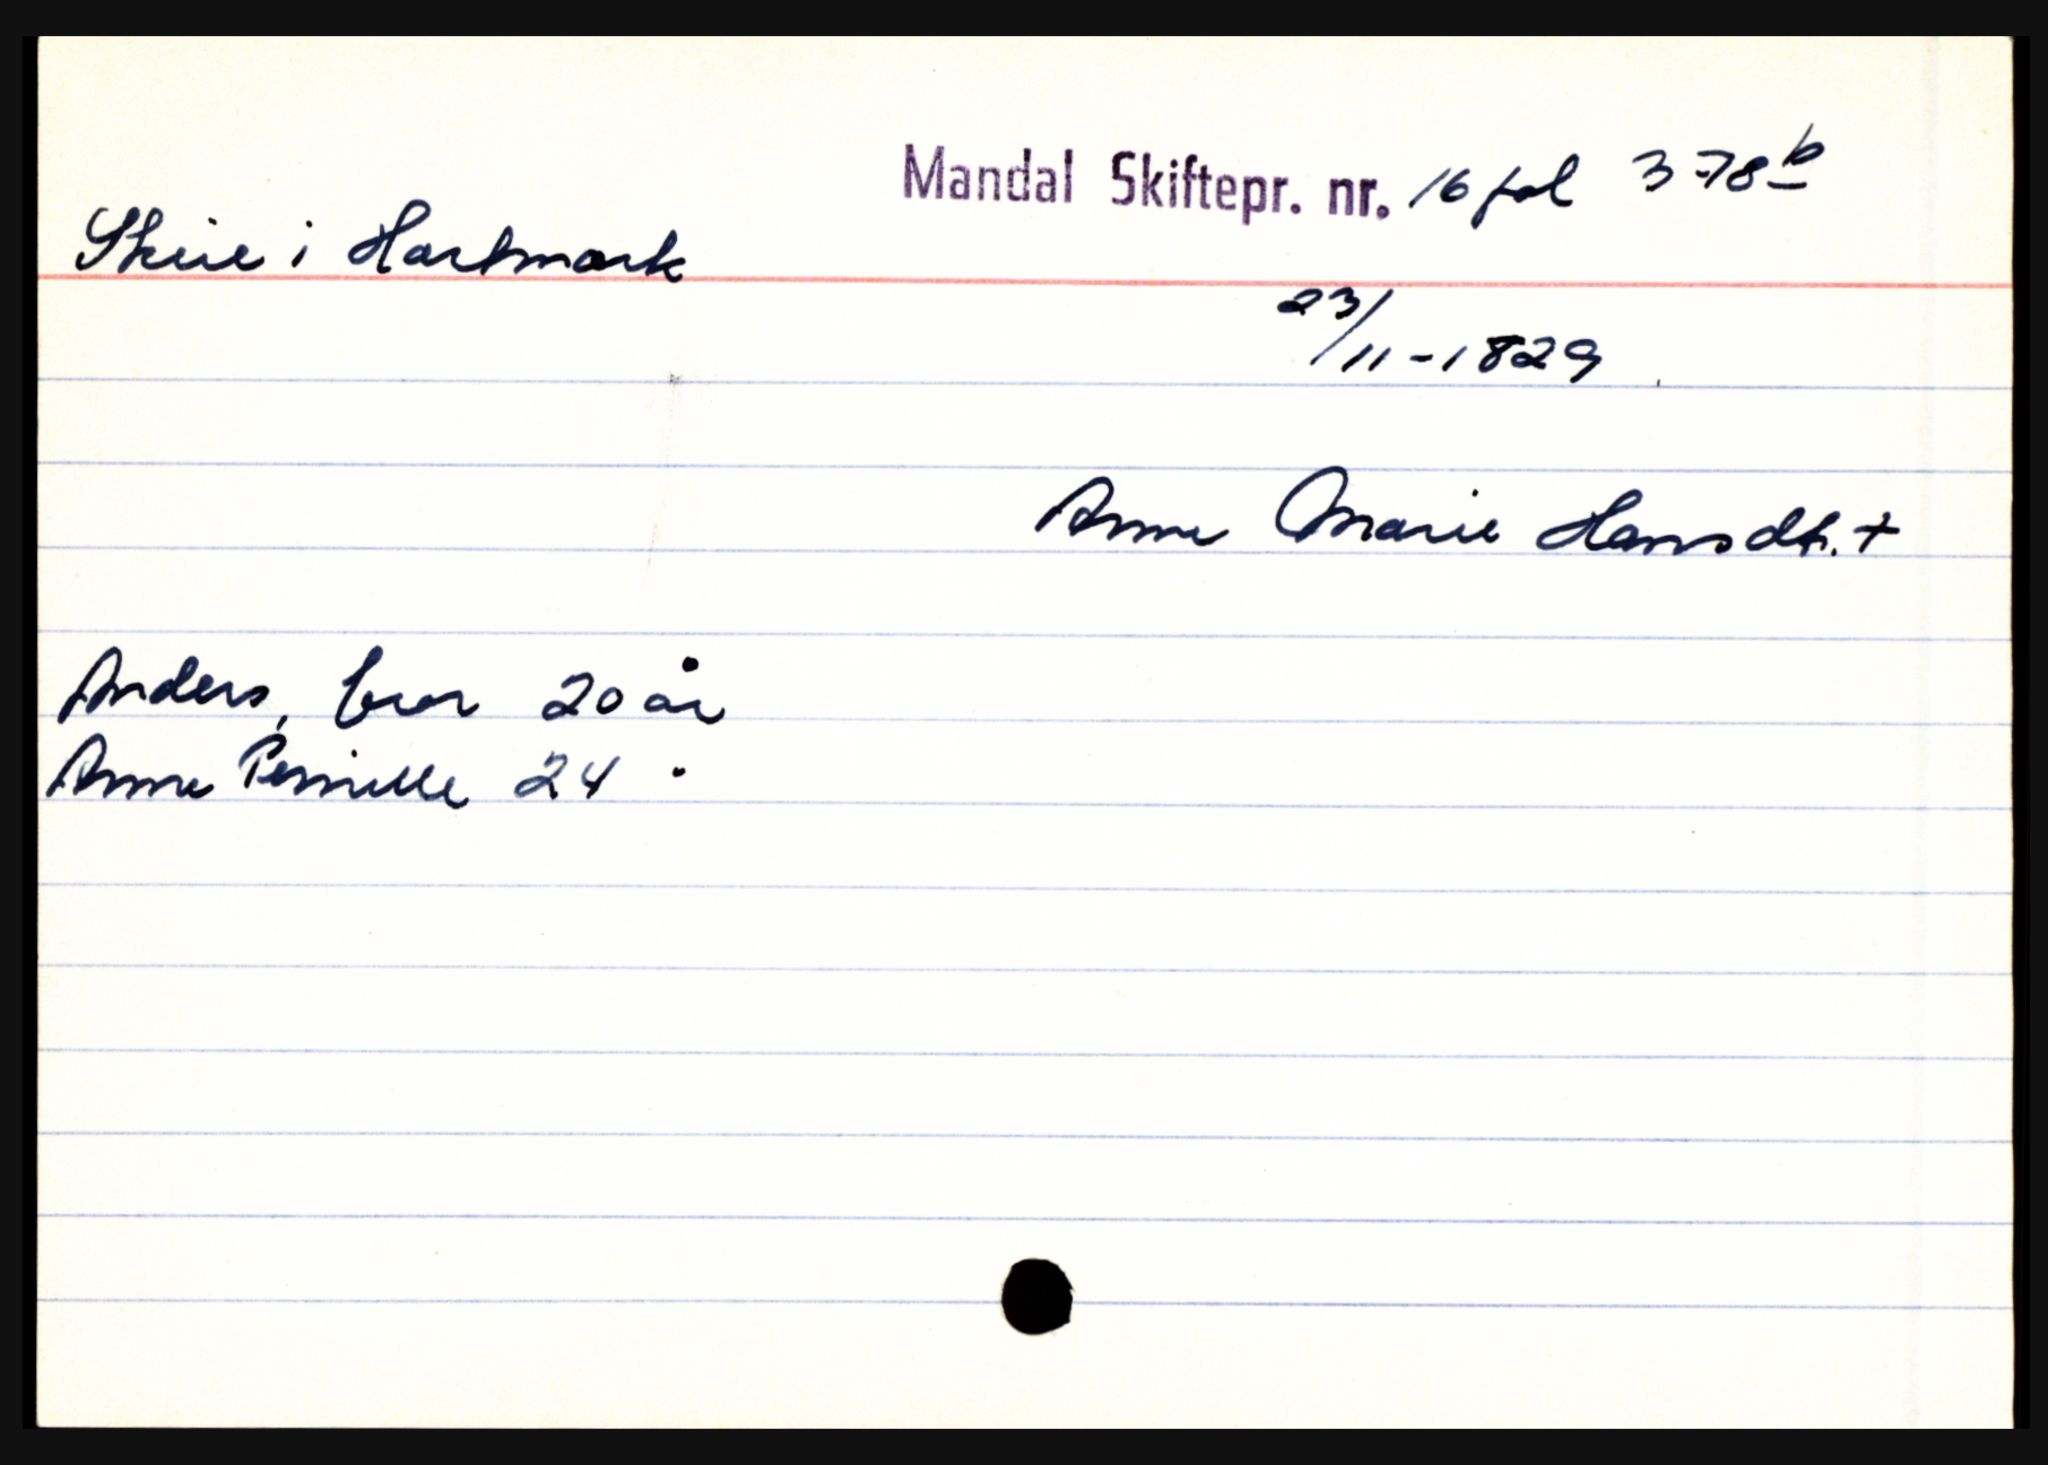 Mandal Skiftepr. nr. 16 fol 378 b
Skeie i Hartmark
23/11-1829
Anne Marie Hansdt. +
Anders, bror 20 år
Anne Pernille 24 "